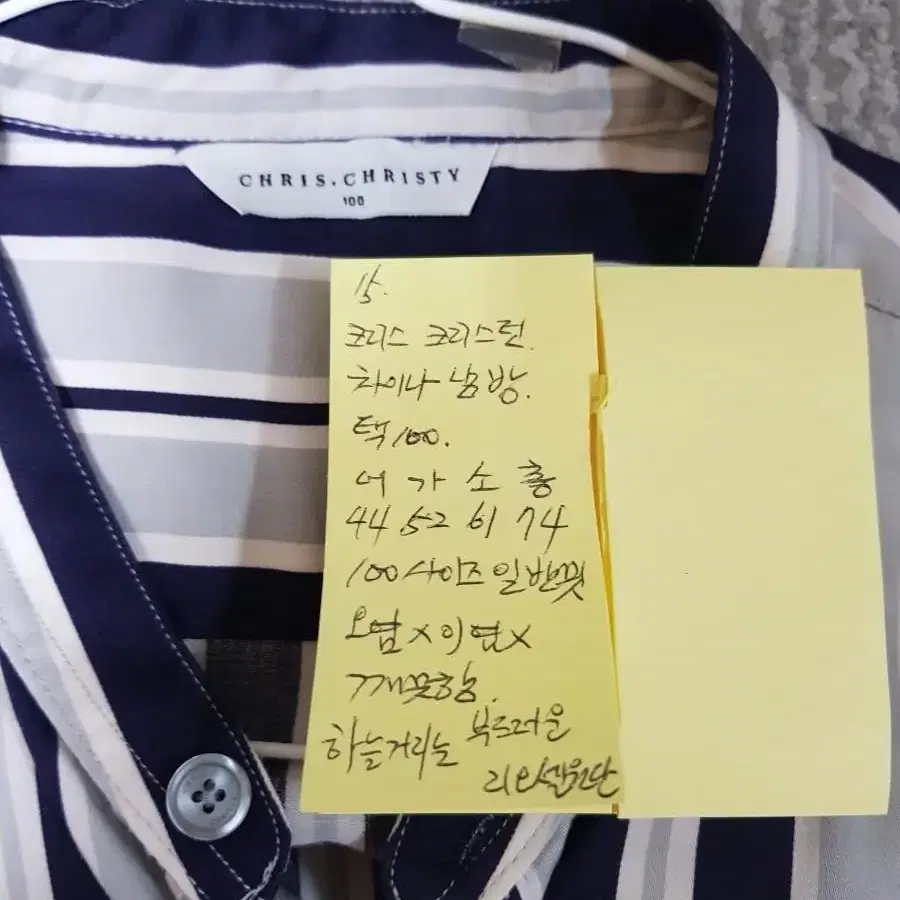 CHRIS.CHRISTY
100
15.
크리스 크리스턴.
차이나 남방.
택100.
어 가 소 총
44 52 61 74
100사이즈 일반핏
오염X이염X
깨끗함.
하늘거리는 부드러운
리오셀원단